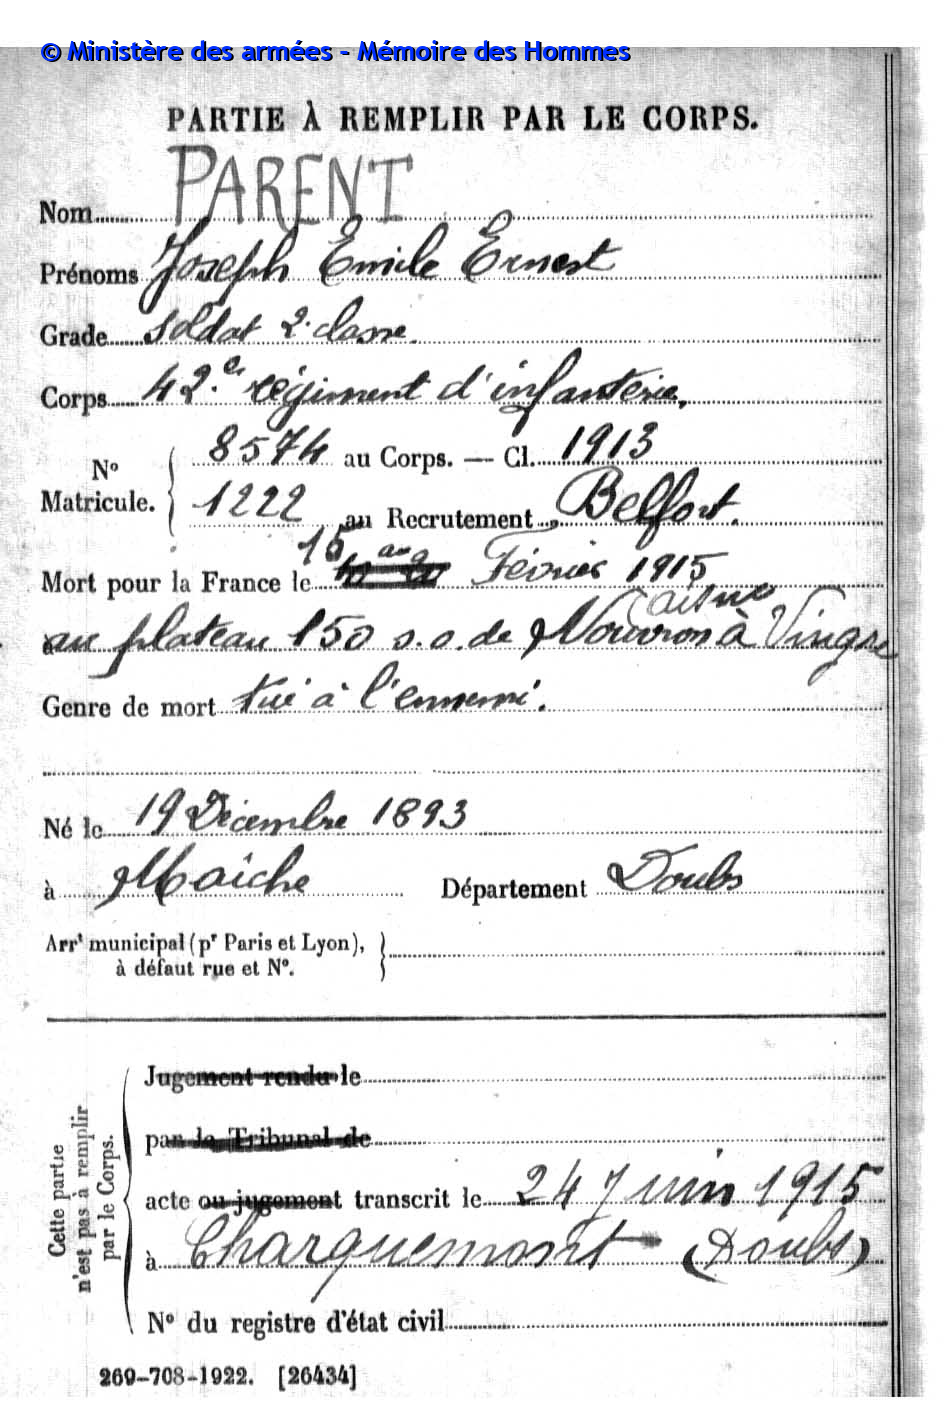 © Ministère des armées - Mémoire des Hommes
PARTIE À REMPLIR PAR LE CORPS.
Nom PARENT
Prénoms Joseph Emile Ernest
Grade soldat 2e classe
Corps 42e régiment d'infanterie,
8574 au Corps. — Cl. 1913
No
Matricule.
1222 au Recrutement Belfort.
15
Mort pour la France le Février 1915
Aisne
à au plateau 150 s.o. de Nouvron à Vingre
Genre de mort tué à l'ennemi.
Né le 19 Décembre 1893
à Maîche Département Doubs
Arrt municipal (pr Paris et Lyon),
à défaut rue et No.
Jugement rendu le
par le Tribunal de
acte ou jugement transcrit le 24 Juin 1915
à Charquemont (Doubs)
No du registre d'état civil
Cette partie
n'est pas à remplir
par le Corps.
269-708-1922. [26434]